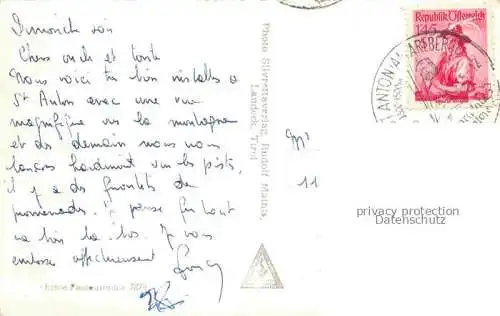 Dimanche soir
Chers oncle et tante
Nous voici très bien installés à
St Anton avec une vue
magnifique sur la montagne
et dès demain nous nous
lançons hardiment sur les pistes,
il y a des quantités de
promenades. Je pense que tout
va bien là-bas. Je vous
embrasse affectueusement
Photo Silvrettaverlag, Rudolf Mathis,
Landeck, Tirol
Republik Österreich
1.45
ST. ANTON A. ARLBERG
11
privacy protection
Datenschutz